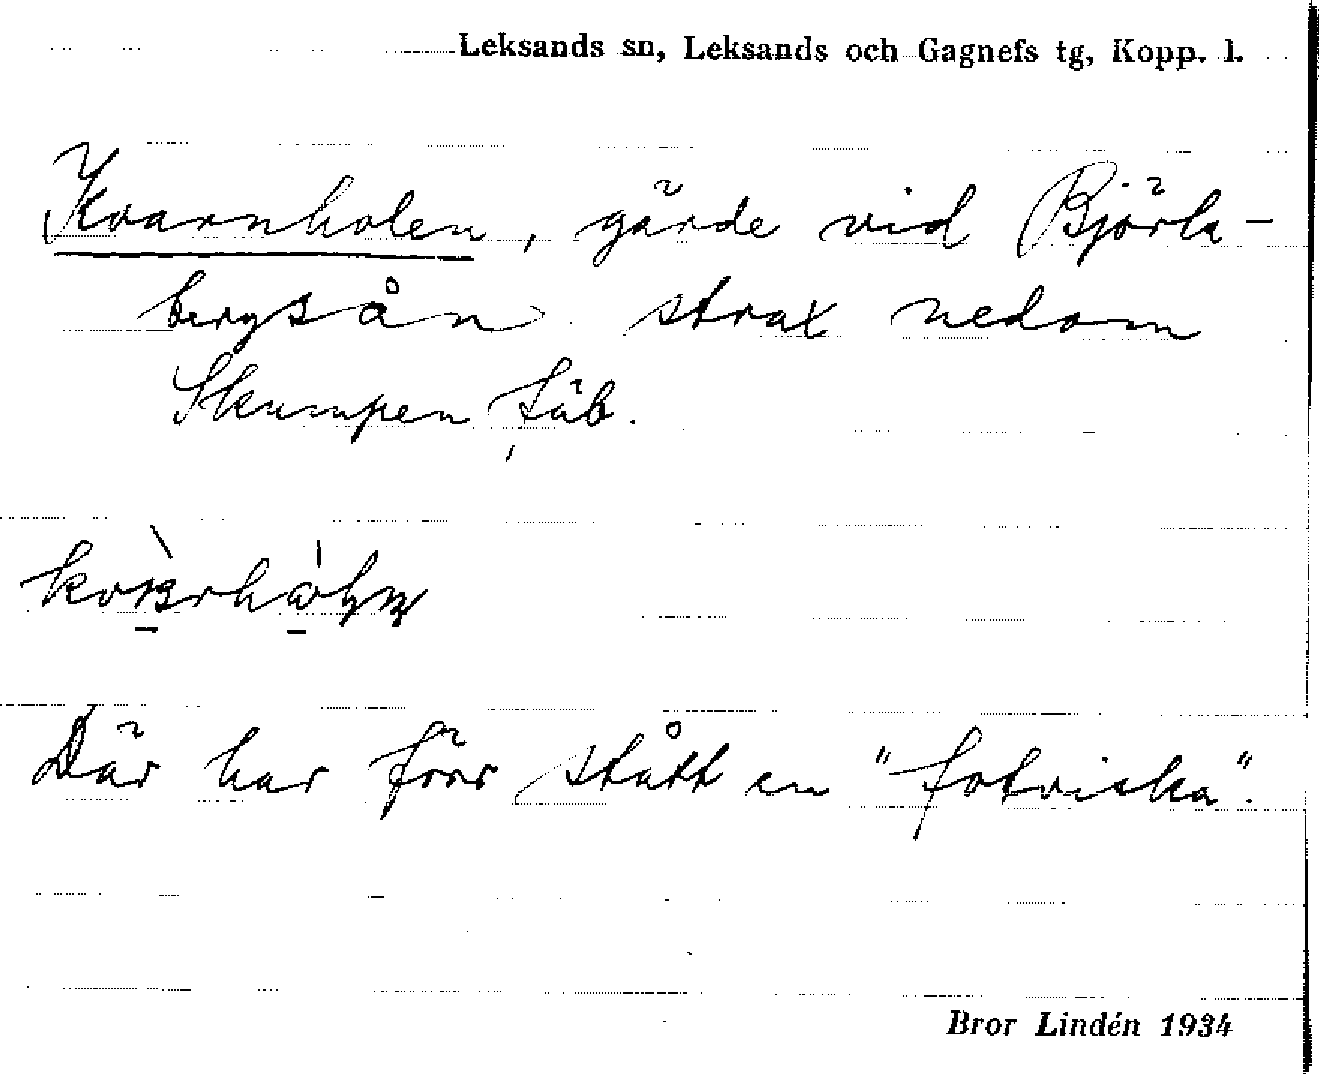 Leksands sn, Leksands och Gagnefs tg, Kopp. l.
Kvarnholen, gärde vid Björla-
bergsån strax nedom
Skumpen fäb.
Där har förr stått en "fotviska".
Bror Lindén 1934